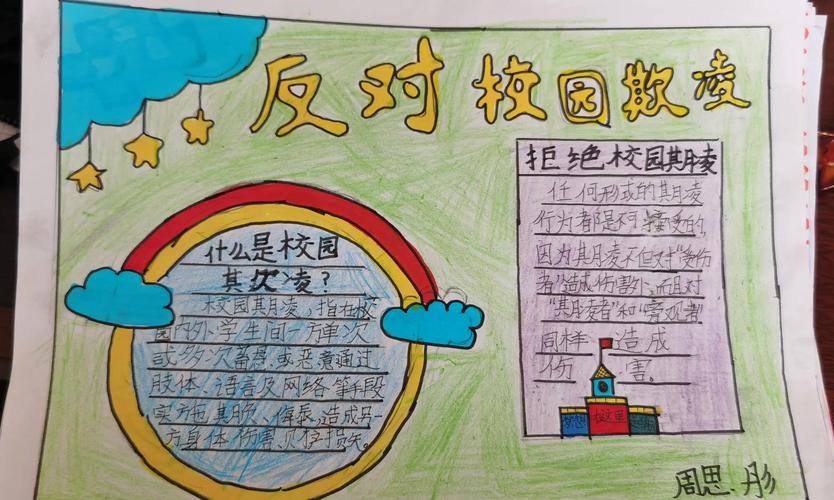 反对校园欺凌
什么是校园
其欠凌?
校园其月凌,指在校
园内外学生间一方单次
或多次蓄意或恶意通过
肢体、语言及网络等手段
实施其欺、侮辱,造成另一
方身体伤害、财产损失。
拒绝校园其月凌
任何形式的其月凌
行为者都是不可接受的,
因为其月凌不但对“受伤
者”造成伤害,而且对
“其月凌者”和“旁观者”
同样造成
伤害。
在这里
周思彤